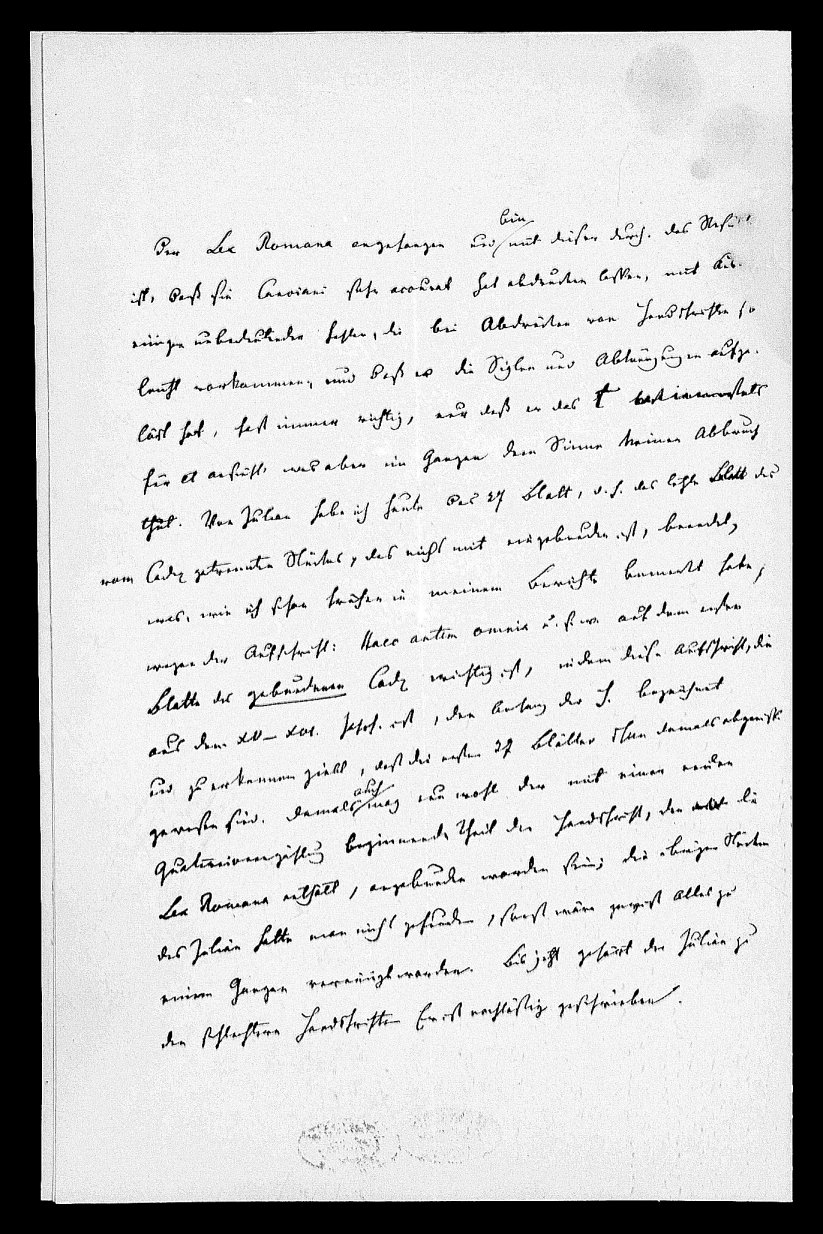 bin
Der Lex Romana angefangen und mit dieser durch. das
ist, daß sie Canciani sehr accurat hat abdrucken lassen, mit
einigen unbedeutenden Fehlern, die bei Abdrücken von Handschriften so
leicht vorkommen, und daß er die Siglen und Abkürzungen aufge-
löst hat, fast immer richtig, nur daß er das t
für et ansieht was aber im Ganzen dem Sinne keinen Abbruch
thut. Von Julian habe ich heute das 27 Blatt, d. h. das letzte Blatt des
vom Codex getrennten Stückes, das nicht mit eingebunden ist, beendet,
was, wie ich schon früher in meinem Bericht bemerkt habe,
wegen der Aufschrift: Haec autem omnia u. s. w. auf dem ersten
Blatte des gebundenen Codex wichtig ist, indem diese Aufschrift, die
aus dem XV–XVI. Jahrh. ist, den Anfang der H. bezeichnet
und zu erkennen giebt, daß die ersten 27 Blätter schon damals abgerißen
auch
gewesen sind. Damals mag nur wohl der mit einer neuen
Quaternionenzählung beginnende Theil der Handschrift, der die
Lex Romana enthält, angebunden worden sein; die übrigen Stücke
des Julian hatte man nicht gefunden, sonst wäre gewiß Alles zu
einem Ganzen vereinigt worden. Bis jetzt gehört der Julian zu
den schlechtern Handschriften Er ist nachläßig geschrieben.